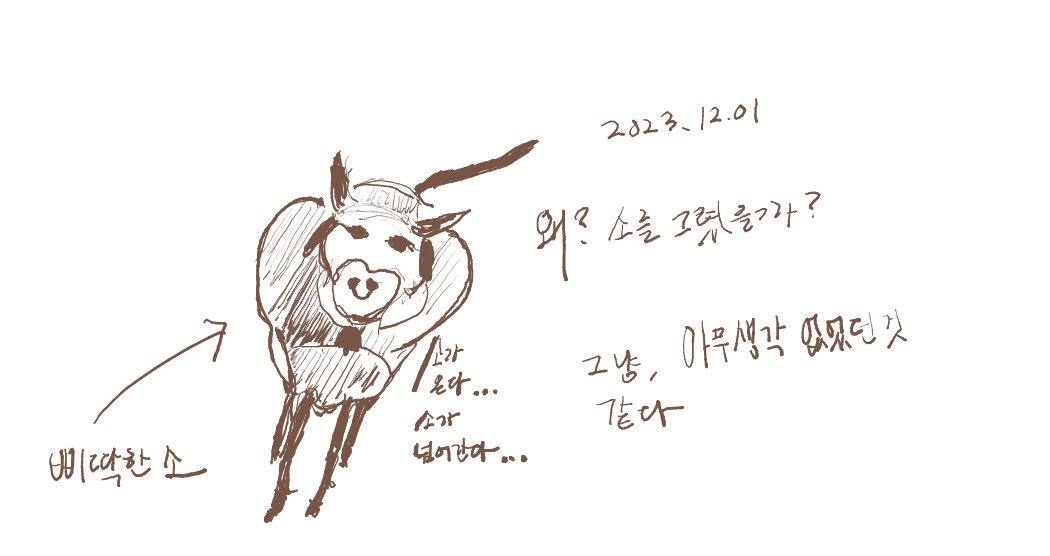 2023.12.01
왜? 소를 그렸을까?
그냥, 아무생각 없었던것
같다
소가
온다...
소가
넘어간다...
삐딱한 소